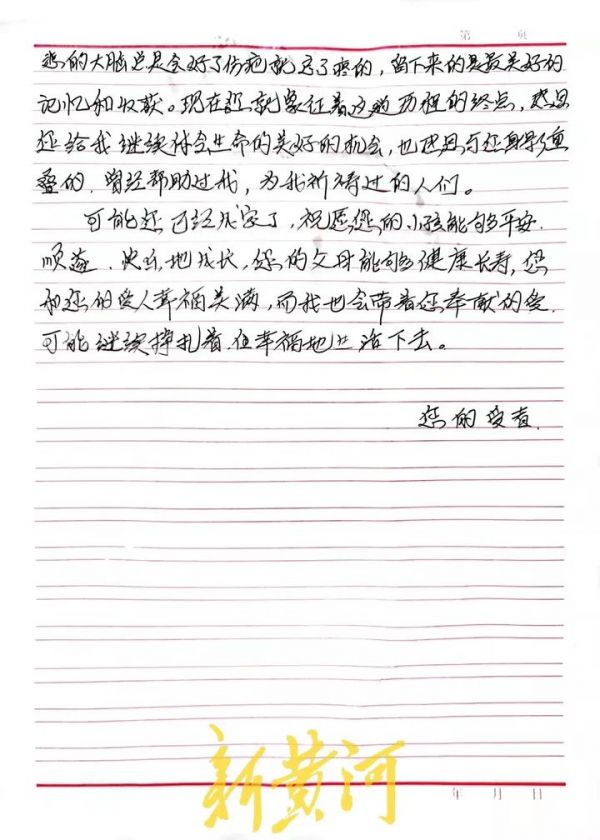 第 页
您的大脑总是会好了伤疤就忘了疼的，留下来的是最美好的
记忆和收获。现在您就象征着这趟历程的终点，感恩
您给我继续体会生命的美好的机会，也感恩与您身影重
叠的．曾经帮助过我，为我祈祷过的人们。
可能您已经成家了，祝愿您的小孩能够平安．
顺遂．快乐地成长，您的父母能够健康长寿，您
和您的爱人幸福美满，而我也会带着您奉献的爱．
可能继续挣扎着．但幸福地生活下去。
您的受者．
新黄河
年 月 日